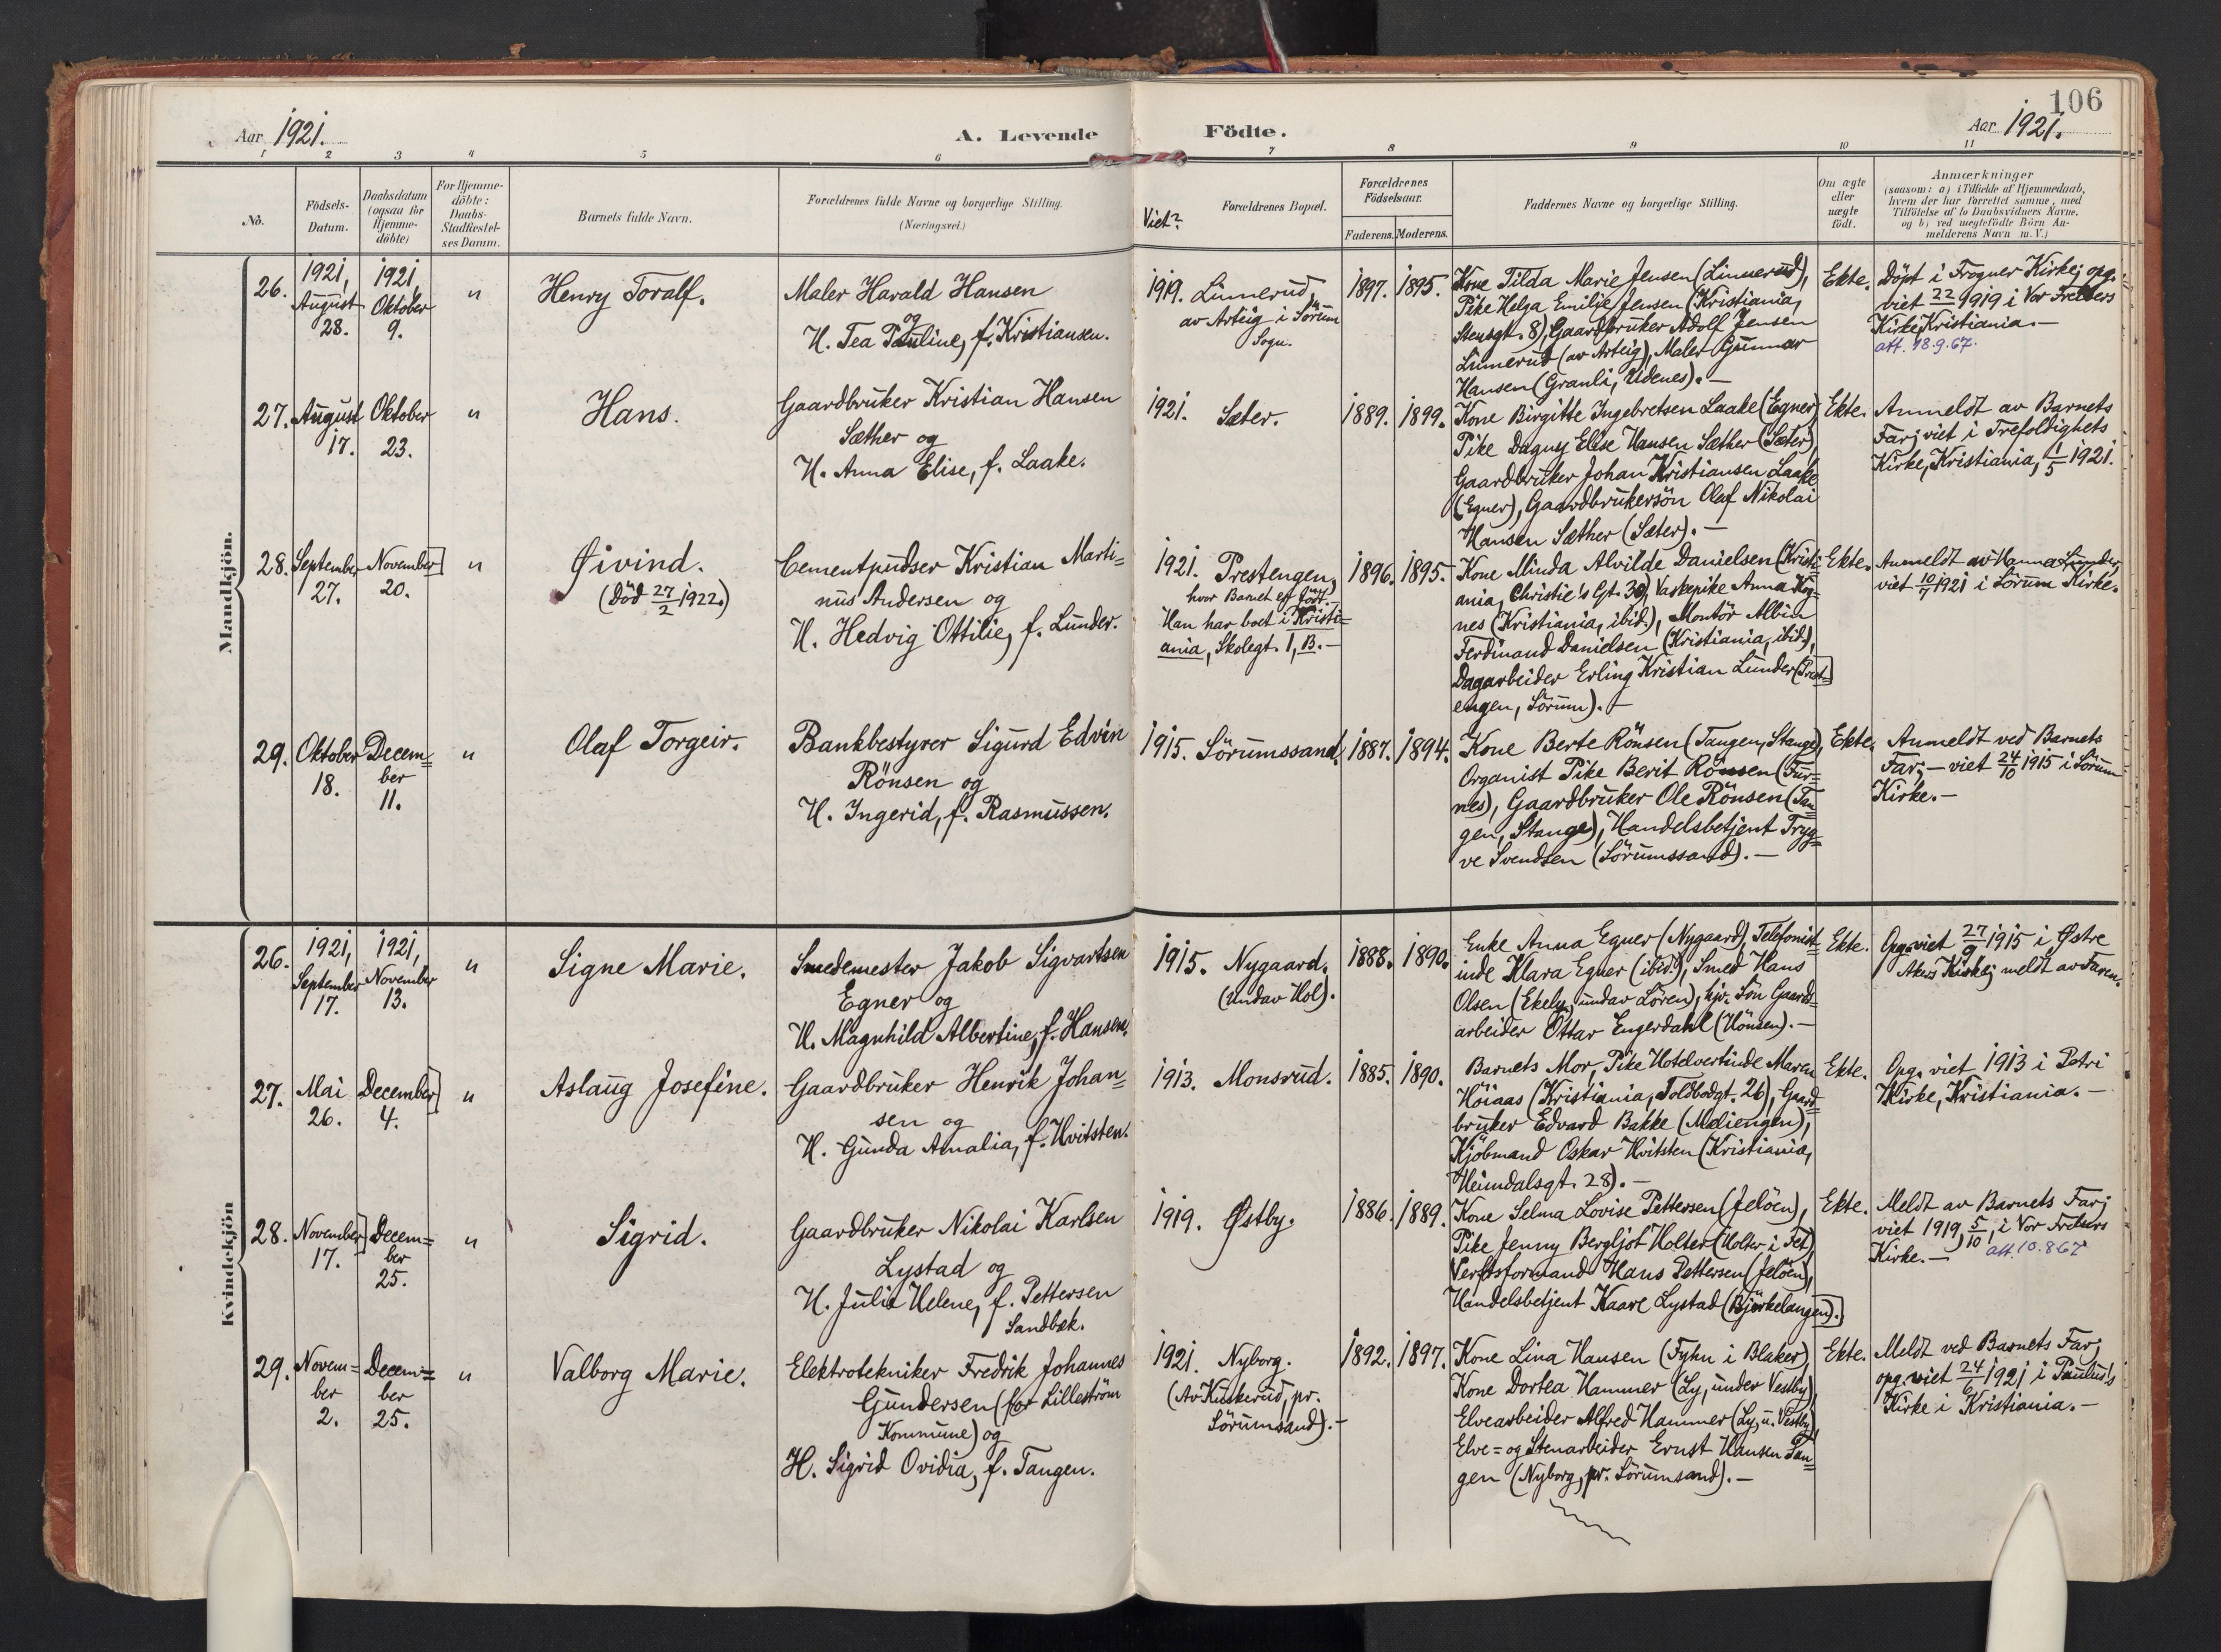 106
Aar 1921.
A. Levende
Födte.
Aar 1921.
1 2 3 4 5 6 7 8 9 10 11
No.
Födsels-
Datum.
Daabsdatum
(ogsaa for
Hjemme-
döbte)
For Hjemme-
döbte:
Daabs-
Stadfæstel-
ses Datum.
Barnets fulde Navn.
Forældrenes fulde Navne og borgerlige Stilling.
(Næringsvei.)
Viet?
Forældrenes Bopæl.
Forældrenes
Födselsaar.
Faderens. Moderens.
Faddernes Navne og borgerlige Stilling.
Om ægte
eller
uægte
födt.
Anmærkninger
(saasom: a) i Tilfælde af Hjemmedaab,
hvem der har forrettet samme, med
Tilföielse af to Daabsvidners Navne.
og b) ved uægtefödte Börn An-
melderens Navn m. V.)
Mandkjön.
26.
1921,
August
28.
1921,
Oktober
9.
"
Henry Toralf.
Maler Harald Hansen
og
H. Tea Pauline, f. Kristiansen.
1919.
Linnerud,
av Arteig i Sörum
Sogn.
1897.
1895.
Kone Tilda Marie Jensen (Linnerud),
Pike Helga Emilie Jensen (Kristiania,
Stensgt. 8), Gaardbruker Adolf Jensen
Linnerud (av Arteig), Maler Gunnar
Hansen (Granli, Udenes). —
Ekte.
Döpt i Frogner Kirke; opg.
viet 22/9 1919 i Vor Frelsers
Kirke, Kristiania. —
att. 18.9.67.
27.
August
17.
Oktober
23.
"
Hans.
Gaardbruker Kristian Hansen
Sæther og
H. Anna Elise, f. Laake.
1921.
Sæter.
1889.
1899.
Kone Birgitte Ingebretsen Laake (Egner),
Pike Dagny Elise Hansen Sæther (Sæter),
Gaardbruker Johan Kristiansen Laake
(Egner), Gaardbrukersön Olaf Nikolai
Hansen Sæther (Sæter). —
Ekte.
Anmeldt av Barnets
Far; viet i Trefoldighets
Kirke, Kristiania, 1/5 1921.
28.
September
27.
November
20.
"
Øivind.
(Död 27/2 1922.)
Cementpudser Kristian Marti=
nus Andersen og
H. Hedvig Ottilie, f. Lunder.
1921.
Prestengen,
hvor Barnet er födt.
Han har boet i Kristi=
ania, Skolegt. 1, B. —
1896.
1895.
Kone Minda Alvilde Danielsen (Kristi=
ania, Christie's Gt. 30), Vaskepike Anna
nes (Kristiania, ibid.), Montör Albin
Ferdinand Danielsen (Kristiania, ibid.),
Dagarbeider Erling Kristian Lunder (Prest=
engen, Sörum). —
Ekte.
Anmeldt av Hanna Lunder,
viet 10/7 1921 i Sörum Kirke.
29.
Oktober
18.
Decem=
ber
11.
"
Olaf Torgeir.
Bankbestyrer Sigurd Edvin
Rönsen og
H. Ingerid, f. Rasmussen.
1915.
Sörumssand.
1887.
1894.
Kone Berte Rönsen (Tangen, Stange),
Organist Pike Berit Rönsen (Fur=
nes), Gaardbruker Ole Rönsen (Tan=
gen, Stange), Handelsbetjent Tryg=
ve Svendsen (Sörumssand). —
Ekte.
Anmeldt ved Barnets
Far; — viet 24/10 1915 i Sörum
Kirke. —
Kvindekjön
26.
1921,
September
17.
1921,
November
13.
"
Signe Marie.
Smedemester Jakob Sigvartsen
Egner og
H. Magnhild Albertine, f. Hansen.
1915.
Nygaard.
(undav Hol).
1888.
1890.
Enke Anna Egner (Nygaard), Telefonist=
inde Klara Egner (ibid.), Smed Hans
Olsen (Ekely, undav Lören), hjv. Sön Gaards=
arbeider Ottar Engerdahl (Hönsen). —
Ekte.
Opg. viet 27/9 1915 i Østre
Akers Kirke; meldt av Faren.
27.
Mai
26.
December
4.
"
Aslaug Josefine.
Gaardbruker Henrik Johan=
sen og
H. Gunda Amalia, f. Hvitsten.
1913.
Monsrud.
1885.
1890.
Barnets Mor, Pike Hotelvertinde Maren
Höiaas (Kristiania, Toldbodgt. 26), Gaard=
bruker Edvard Bakke (Meliengen),
Kjöbmand Oskar Hvitsten (Kristiania,
Heimdalsgt. 28). —
Ekte.
Opg. viet 1913 i Petri
Kirke, Kristiania. —
28.
November
17.
Decem=
ber
25.
"
Sigrid.
Gaardbruker Nikolai Karlsen
Lystad og
H. Julie Helene, f. Pettersen
Sandbæk.
1919.
Østby.
1886.
1889.
Kone Selma Lovise Pettersen (Jelöen),
Pike Jenny Bergljot Holter (Holter i Fet),
Verftsformand Hans Pettersen (Jelöen),
Handelsbetjent Kaare Lystad (Björkelangen).
Ekte.
Meldt av Barnets Far;
viet 1919, 5/10, i Vor Frelsers
Kirke. —
att. 10.8.67
29.
Novem=
ber
2.
Decem=
ber
25.
"
Valborg Marie.
Elektrotekniker Fredrik Johannes
Gundersen (for Lilleström
Kommune) og
H. Sigrid Ovidia, f. Tangen.
1921.
Nyborg.
(Av Kuskerud, pr.
Sörumsand). —
1892.
1897.
Kone Lina Hansen (Fyhn i Blaker),
Kone Dortea Hammer (Ly, under Vestby),
Elvearbeider Alfred Hammer (Ly, u. Vestby),
Elve= og Stenarbeider Ernst Hansen Tan=
gen (Nyborg, pr. Sörumsand). —
Ekte.
Meldt ved Barnets Far;
opg. viet 24/6 1921 i Paulus's
Kirke i Kristiania. —